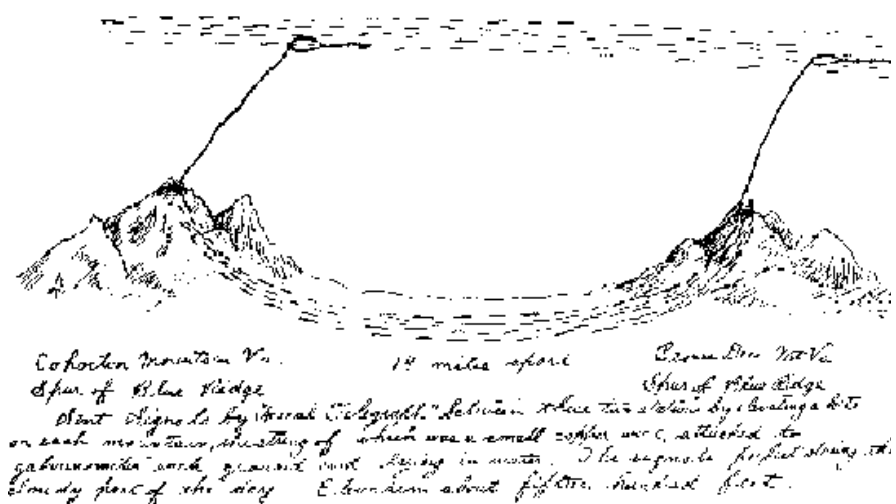 Cohoctin Mountain Va. 14 miles apart Va
Spur of Blue Ridge Spur of Blue Ridge
Sent Signals by "Aerial Telegraph" Between these two by elevating a kite
on each mountain, the string of which was a small copper wire, attached to
galvanometer and ground and in water. The signals perfect during the
cloudy part of the day Elevation about fifteen hundred feet.